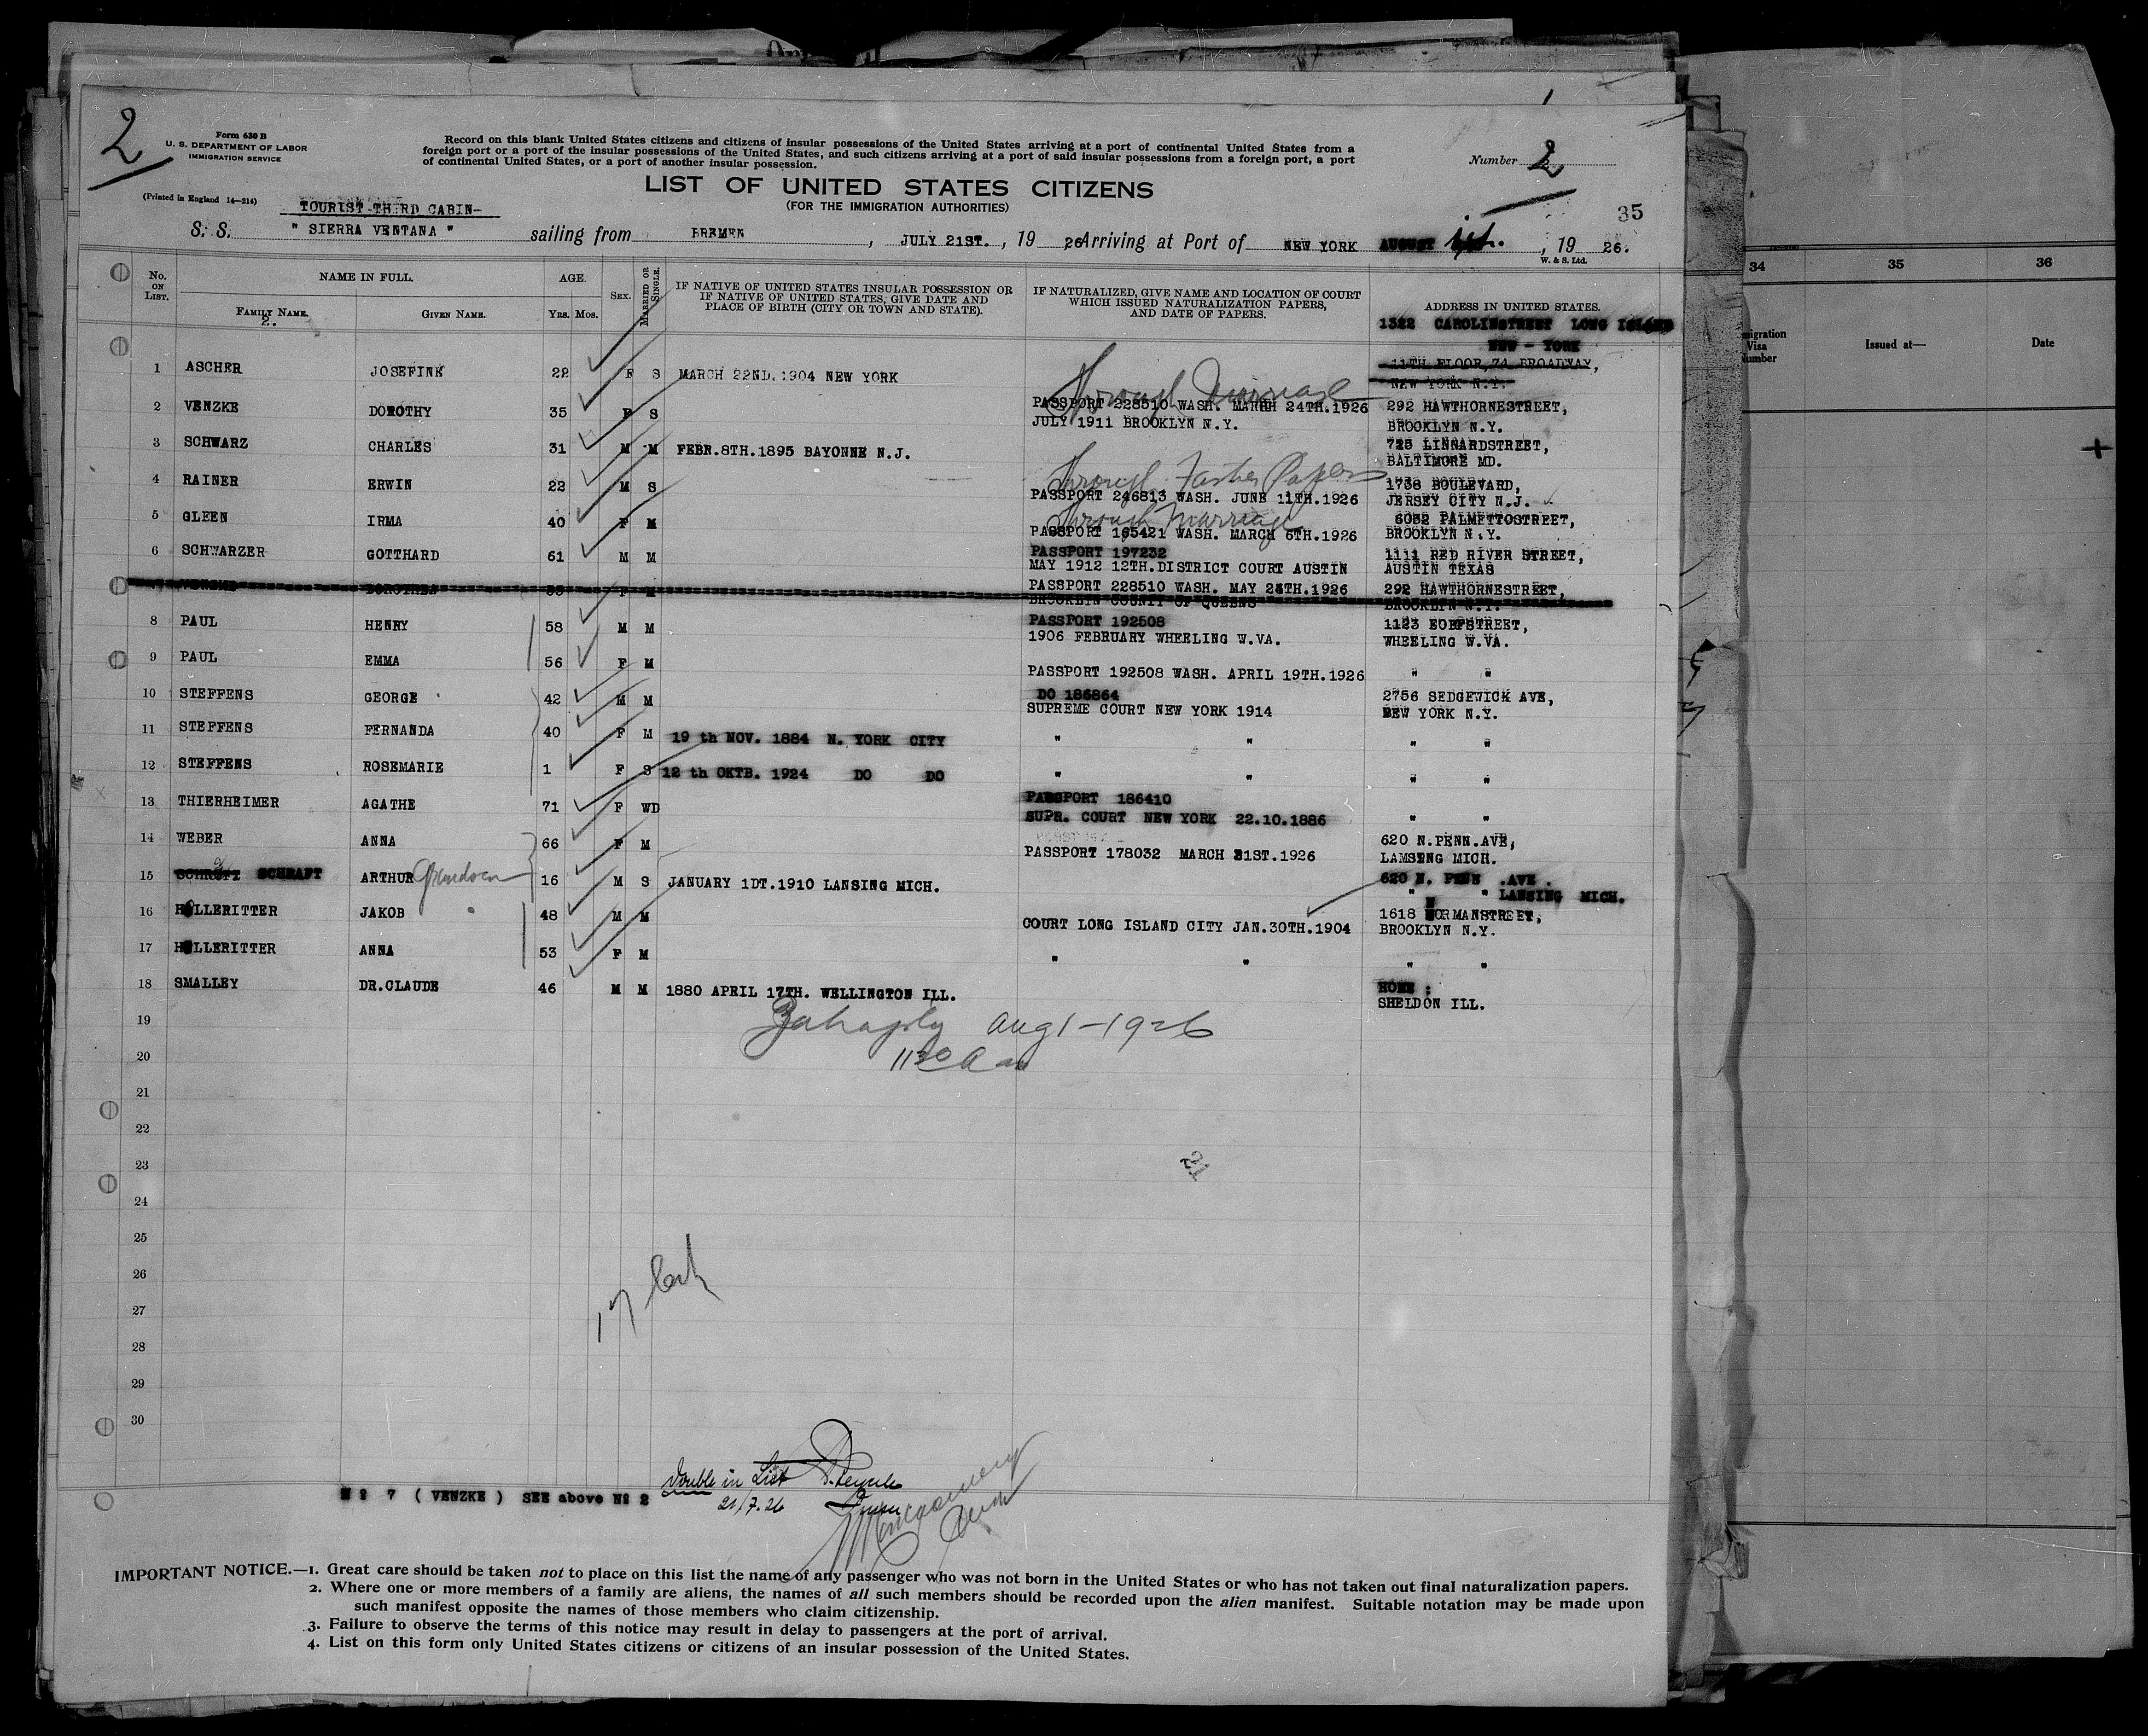 2
Form 630 B
U. S. DEPARTMENT OF LABOR
IMMIGRATION SERVICE
Record on this blank United States citizens and citizens of insular possessions of the United States arriving at a port of continental United States from a
foreign port or a port of the insular possessions of the United States, and such citizens arriving at a port of said insular possessions from a foreign port, a port
of continental United States, or a port of another insular possession.
Number 2
LIST OF UNITED STATES CITIZENS
(FOR THE IMMIGRATION AUTHORITIES)
(Printed in England 14—214)
TOURIST THIRD CABIN-
35
S. S. " SIERRA VENTANA " sailing from BREMEN, JULY 21ST., 19 26 Arriving at Port of NEW YORK AUGUST 1st., 19 26.
W. & S. Ltd.
No. ON LIST.
NAME IN FULL.
FAMILY NAME.
2.
GIVEN NAME.
AGE.
Yrs. Mos.
SEX.
MARRIED OR SINGLE.
IF NATIVE OF UNITED STATES INSULAR POSSESSION OR
IF NATIVE OF UNITED STATES, GIVE DATE AND
PLACE OF BIRTH (CITY OR TOWN AND STATE).
IF NATURALIZED, GIVE NAME AND LOCATION OF COURT
WHICH ISSUED NATURALIZATION PAPERS,
AND DATE OF PAPERS.
ADDRESS IN UNITED STATES.
1322 CAROLINSTREET LONG ISLAND
NEW - YORK
1 ASCHER JOSEFINE 22 F S MARCH 22ND.1904 NEW YORK 11TH FLOOR,74 BROADWAY,
NEW YORK N.Y.
Through Marriage
2 VENZKE DOROTHY 35 F S PASSPORT 228510 WASH. MARCH 24TH.1926 292 HAWTHORNESTREET,
JULY 1911 BROOKLYN N.Y. BROOKLYN N.Y.
3 SCHWARZ CHARLES 31 M M FEBR.8TH.1895 BAYONNE N.J. 725 LINNARDSTREET,
BALTIMORE MD.
Through Father Papers
4 RAINER ERWIN 22 M S PASSPORT 246813 WASH. JUNE 11TH.1926 1738 BOULEVARD,
JERSEY CITY N.J.
Through Marriage
5 GLEEN IRMA 40 F M PASSPORT 165421 WASH. MARCH 6TH.1926 6052 PALMETTOSTREET,
BROOKLYN N.Y.
6 SCHWARZER GOTTHARD 61 M M PASSPORT 197232 1111 RED RIVER STREET,
MAY 1912 12TH.DISTRICT COURT AUSTIN AUSTIN TEXAS
VENZKE DOROTHEA 35 F M PASSPORT 228510 WASH. MAY 25TH.1926 292 HAWTHORNESTREET,
BROOKLYN COUNTY OF QUEENS BROOKLYN N.Y.
8 PAUL HENRY 58 M M PASSPORT 192508
1906 FEBRUARY WHEELING W.VA. WHEELING W.VA.
9 PAUL EMMA 56 F M PASSPORT 192508 WASH. APRIL 19TH.1926 " "
10 STEFFENS GEORGE 42 M M DO 186864 2756 SEDGEWICK AVE,
SUPREME COURT NEW YORK 1914 NEW YORK N.Y.
11 STEFFENS FERNANDA 40 F M 19 th NOV. 1884 N. YORK CITY " " " "
12 STEFFENS ROSEMARIE 1 F S 12 th OKTB. 1924 DO DO " " " "
13 THIERHEIMER AGATHE 71 F WD PASSPORT 186410
SUPR. COURT NEW YORK 22.10.1886 " "
14 WEBER ANNA 66 F M PASSPORT 178032 MARCH 31ST.1926 620 N.PENN.AVE,
LANSING MICH.
15 SCHRAFT ARTHUR Grandson 16 M S JANUARY 1DT.1910 LANSING MICH. 620 N. PENN .AVE .
" " LANSING MICH.
16 HOLLERITTER JAKOB 48 M M COURT LONG ISLAND CITY JAN.30TH.1904 1618 NORMANSTREET,
BROOKLYN N.Y.
17 HOLLERITTER ANNA 53 F M " " " "
18 SMALLEY DR.CLAUDE 46 M M 1880 APRIL 17TH. WELLINGTON ILL. HOME :
SHELDON ILL.
19
Aug 1-1926
20
11 30 a m
21
22
23
21
24
25
26
27
28
29
30
Nº 7 ( VENZKE ) SEE above Nº 2
Double in List
21/7.26
IMPORTANT NOTICE.—1. Great care should be taken not to place on this list the name of any passenger who was not born in the United States or who has not taken out final naturalization papers.
2. Where one or more members of a family are aliens, the names of all such members should be recorded upon the alien manifest. Suitable notation may be made upon
such manifest opposite the names of those members who claim citizenship.
3. Failure to observe the terms of this notice may result in delay to passengers at the port of arrival.
4. List on this form only United States citizens or citizens of an insular possession of the United States.
34 35 36
Visa
Issued at—
Date